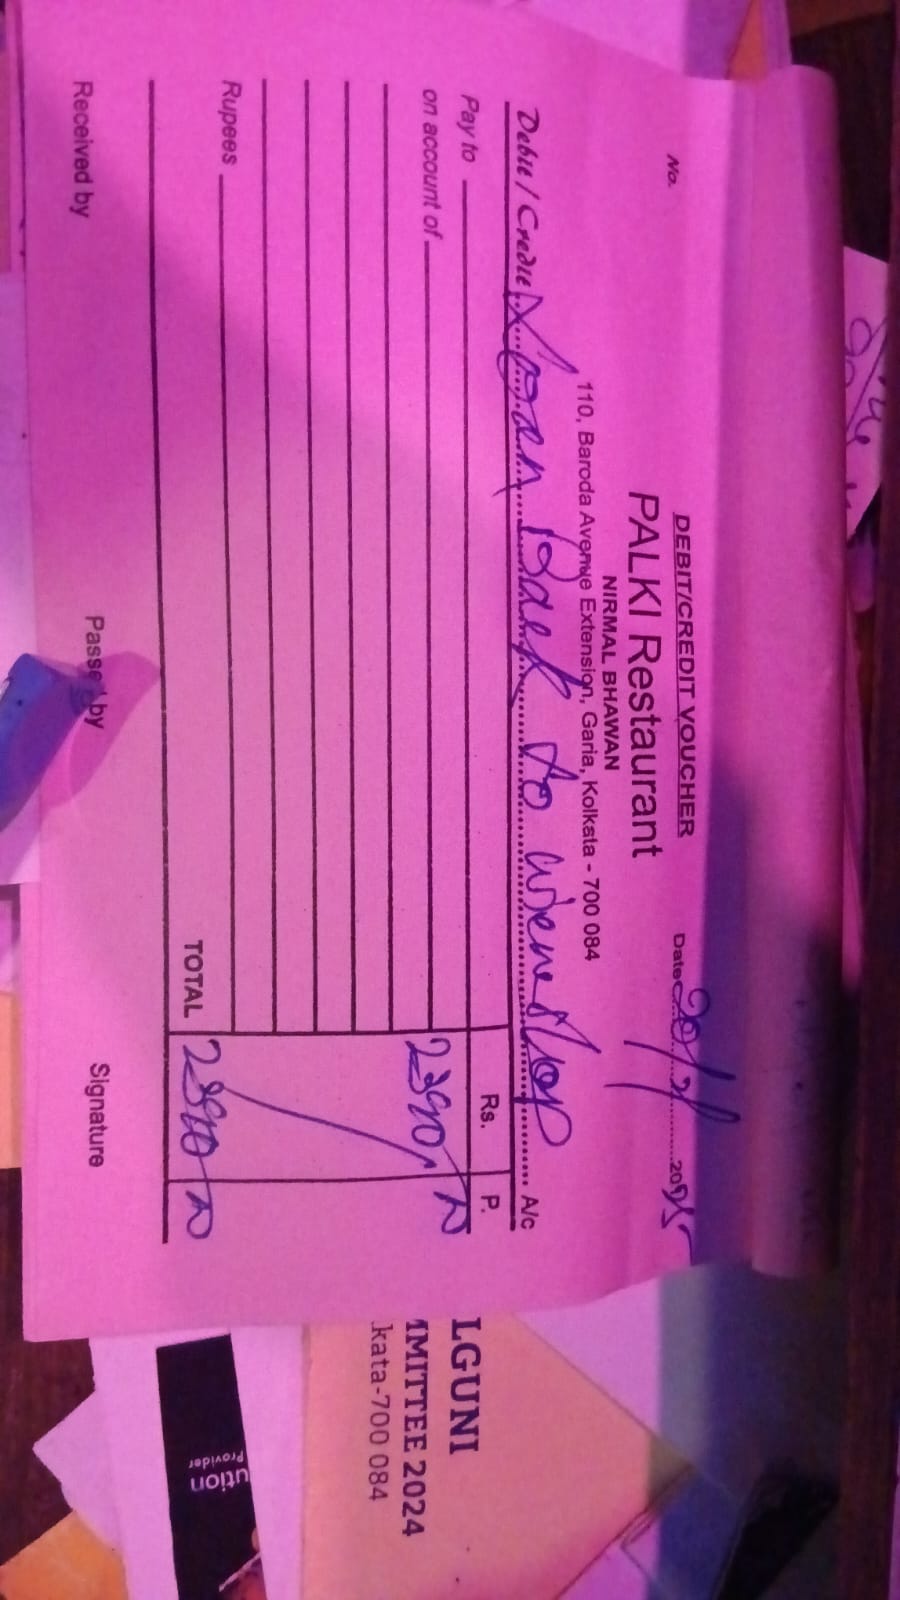 DEBIT/CREDIT VOUCHER
No.
Date 20/2/ 2025
PALKI Restaurant
NIRMAL BHAWAN
110, Baroda Avenue Extension, Garia, Kolkata - 700 084
Debit / Credit Loan Back to wine Shop A/c
Rs. P.
Pay to
on account of
Rupees
TOTAL
Received by
Passed by
Signature
LGUNI
MMITTEE 2024
kata-700 084
ution
Provider